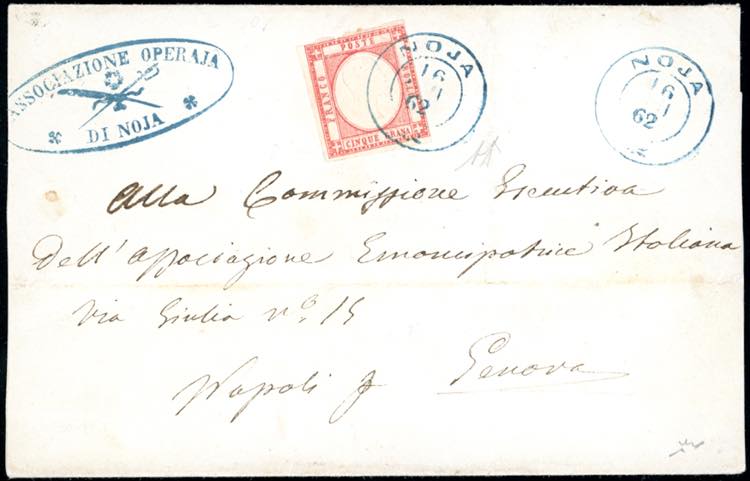 ASSOCIAZIONE OPERAJA
DI NOJA
FRANCO
POSTE
BOLLO
CINQUE GRANA
NOJA
16
62
NOJA
16
1
62
Alla Commissione Esecutiva
Dell' Associazione Emancipatrice Italiana
Via Giulia n.º 15
Napoli p Genova